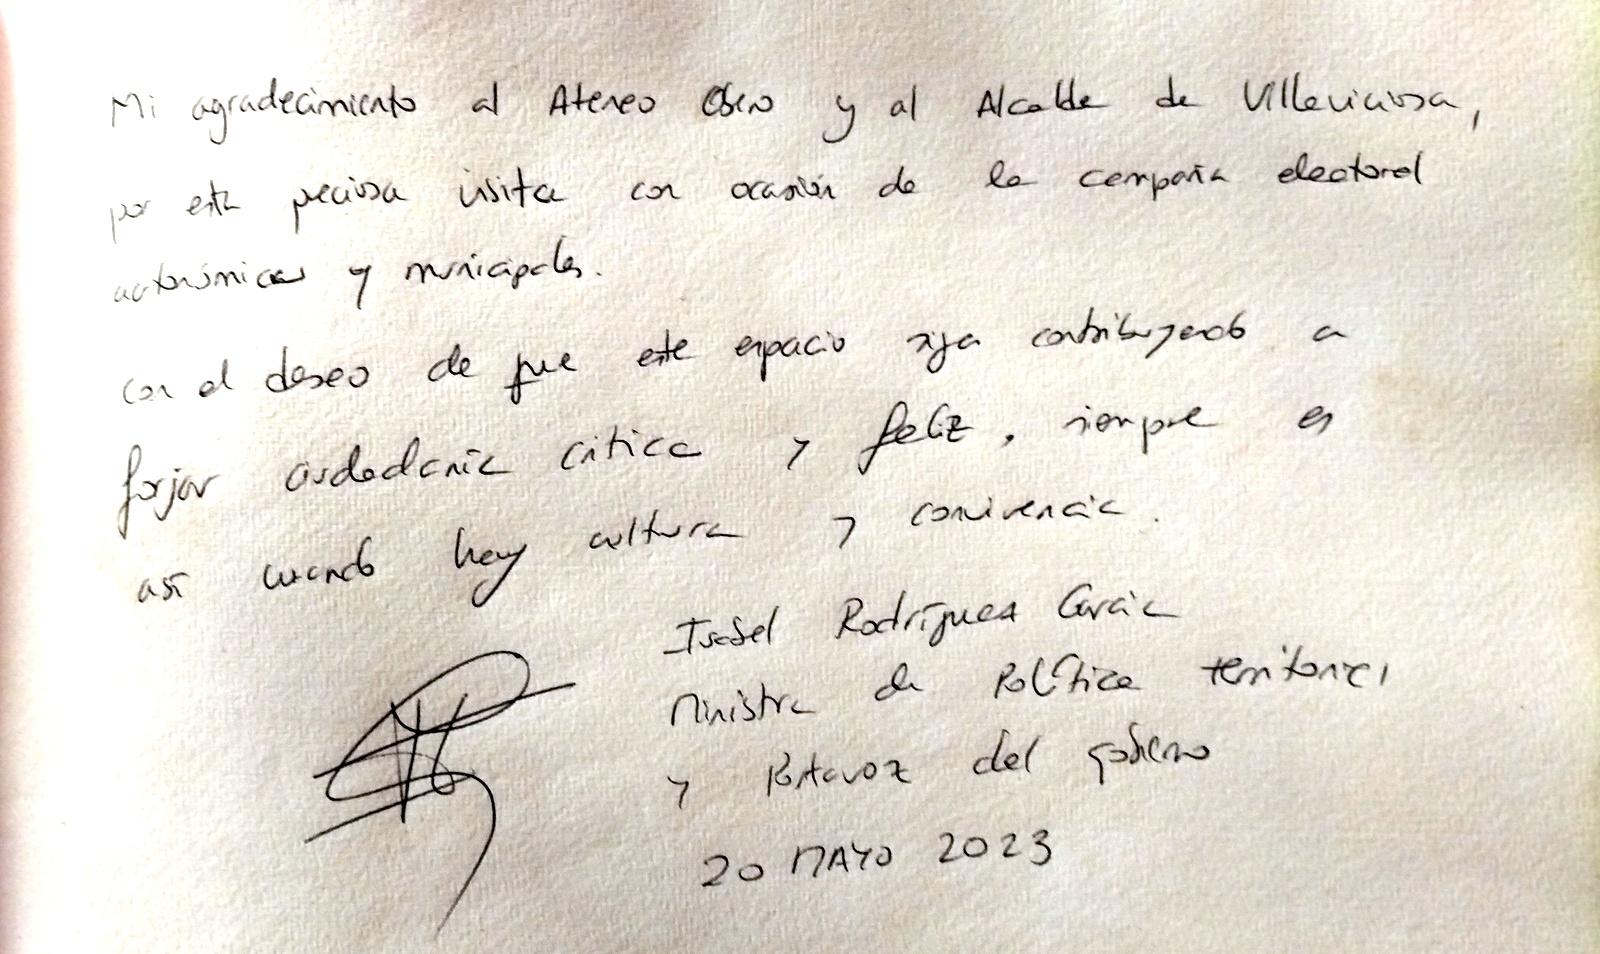 Mi agradecimiento al Ateneo Obrero y al Alcalde de Villaviciosa,
por esta preciosa visita con ocasión de la campaña electoral
autonómicas y municipales.
con el deseo de que este espacio siga contribuyendo a
forjar ciudadanía crítica y feliz, siempre es
así cuando hay cultura y convivencia.
Isabel Rodríguez García
Ministra de Política territorial
y Portavoz del gobierno
20 MAYO 2023